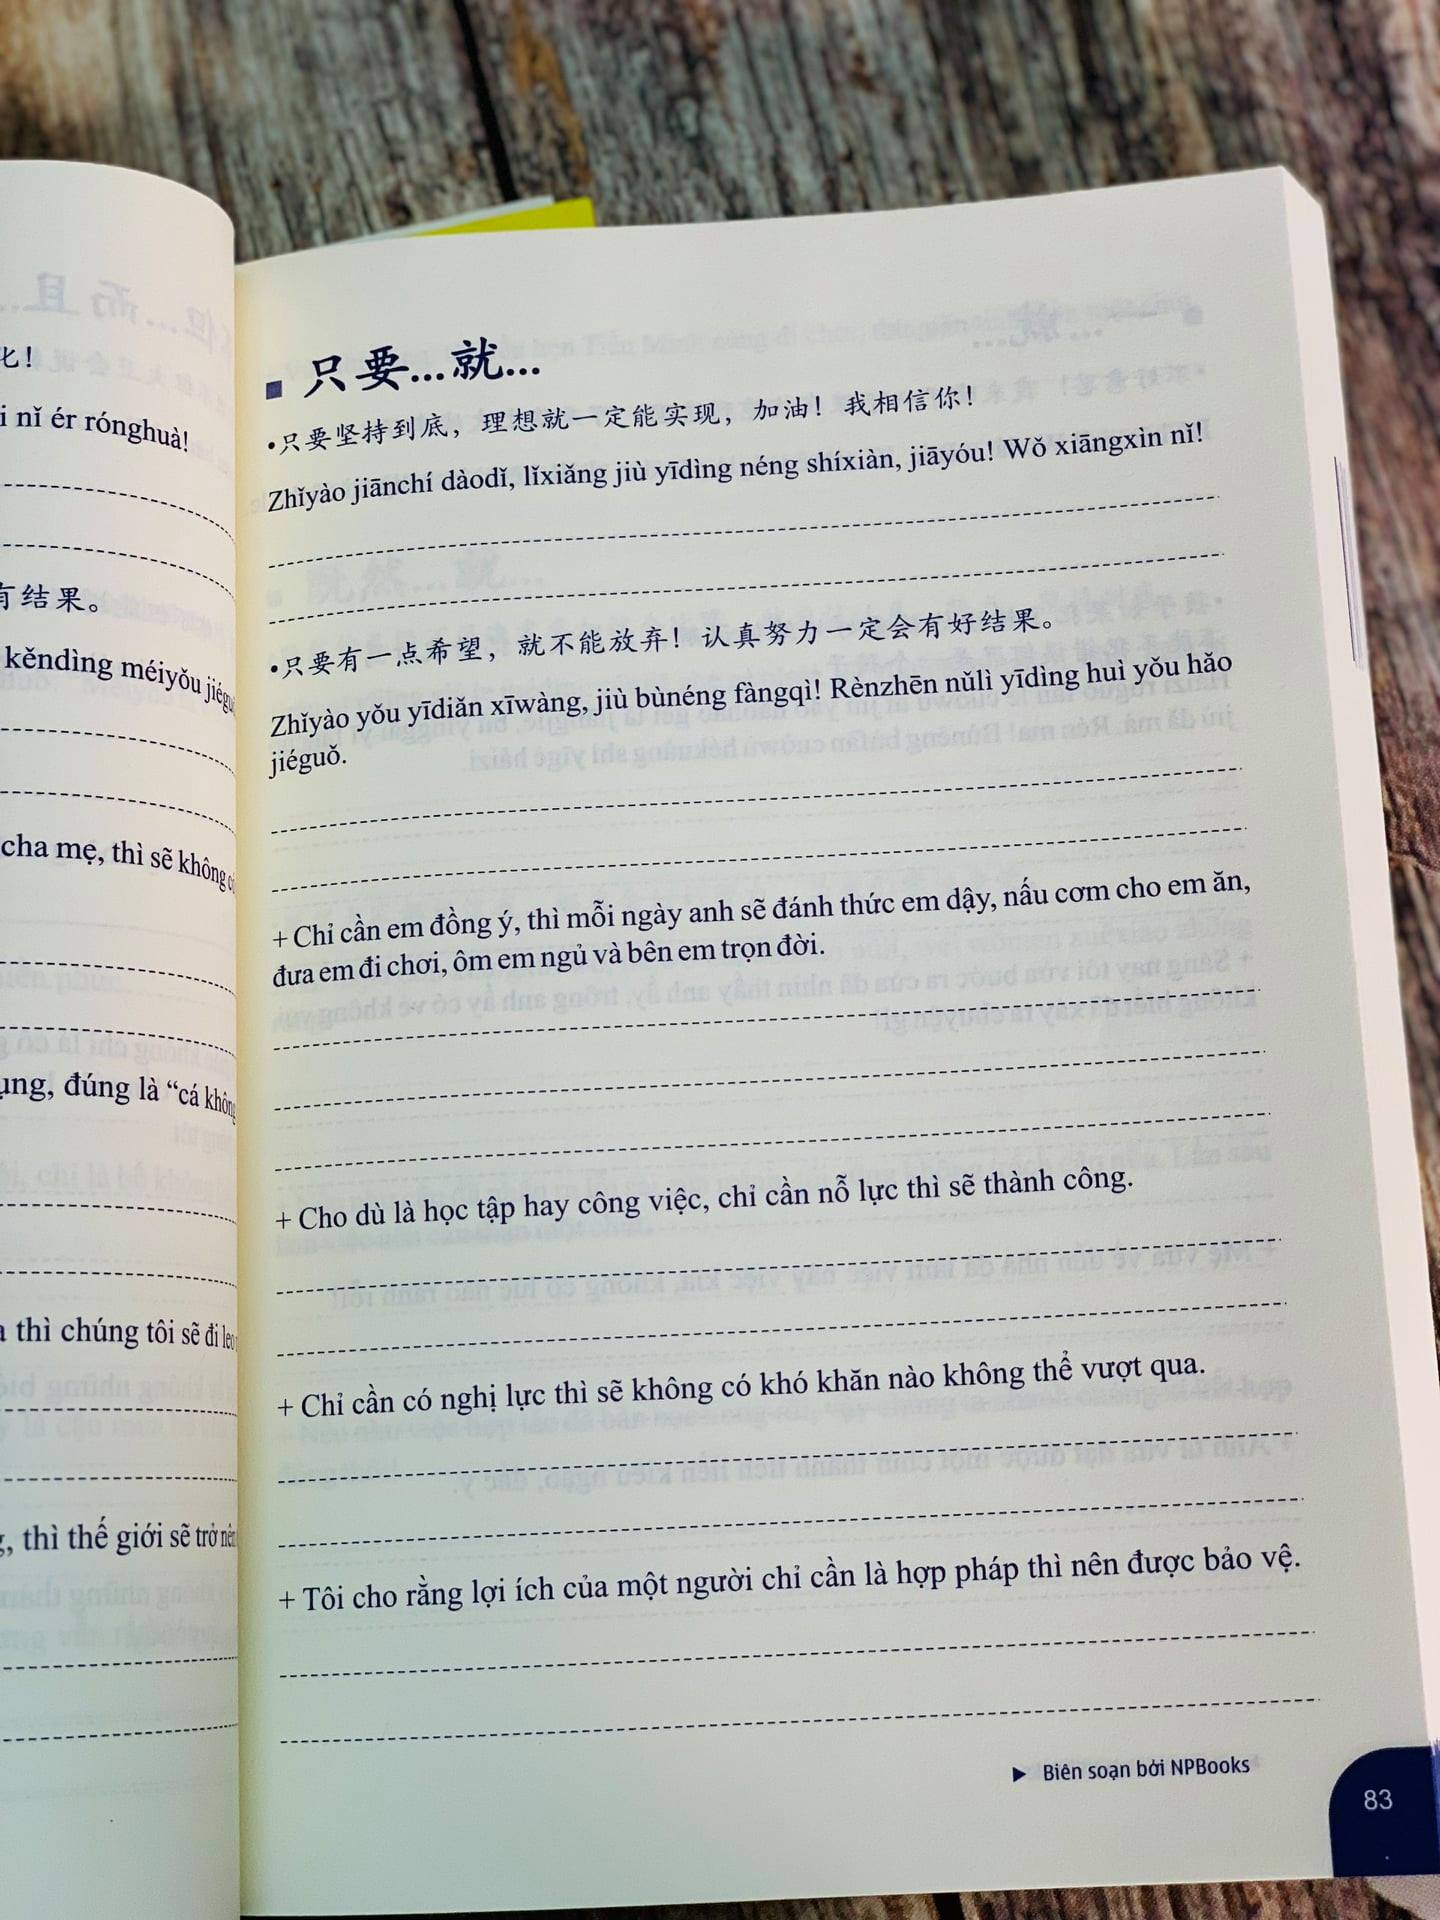 化！
i nǐ ér rónghuà!
有结果。
kěndìng méiyǒu
cha mẹ, thì sẽ không
đúng là “cá không
thì chúng tôi sẽ đi leo
, thì thế giới sẽ trở nên
只要...就...
•只要坚持到底，理想就一定能实现，加油！我相信你！
Zhǐyào jiānchí dàodǐ, lǐxiǎng jiù yīdìng néng shíxiàn, jiāyóu! Wǒ xiāngxìn nǐ!
•只要有一点希望，就不能放弃！认真努力一定会有好结果。
Zhǐyào yǒu yīdiǎn xīwàng, jiù bùnéng fàngqì! Rènzhēn nǔlì yīdìng huì yǒu hǎo
jiéguǒ.
+ Chỉ cần em đồng ý, thì mỗi ngày anh sẽ đánh thức em dậy, nấu cơm cho em ăn,
đưa em đi chơi, ôm em ngủ và bên em trọn đời.
+ Cho dù là học tập hay công việc, chỉ cần nỗ lực thì sẽ thành công.
+ Chỉ cần có nghị lực thì sẽ không có khó khăn nào không thể vượt qua.
+ Tôi cho rằng lợi ích của một người chỉ cần là hợp pháp thì nên được bảo vệ.
▶ Biên soạn bởi NPBooks
83